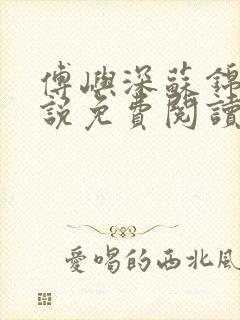 傅嶼深蘇錦
說免費閱讀
愛唱的西北風